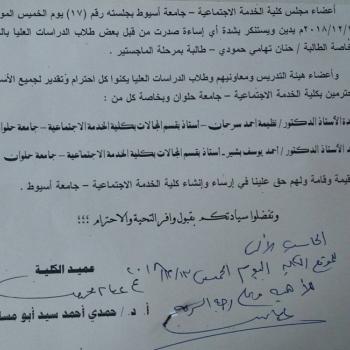 أعضاء مجلس كلية الخدمة الاجتماعية – جامعة أسيوط بجلسته رقم (١٧) يوم الخميس المو
٢٠١٨/١٢/ م يدين ويستنكر بشدة أي إساءة صدرت من قبل بعض طلاب الدراسات العليا بال
خاصة الطالبة / حنان تهامي حمودي – طالبة بمرحلة الماجستير .
وأعضاء هيئة التدريس ومعاونيهم وطلاب الدراسات العليا يكنوا كل احترام وتقدير لجميع الأس
حترمين بكلية الخدمة الاجتماعية – جامعة حلوان وبخاصة كل من :
دة الأستاذ الدكتور / نظيمة أحمد سرحان – أستاذ بقسم المجالات بكلية الخدمة الاجتماعية – جامعة حلوا
د الأستاذ الدكتور / أحمد يوسف بشير – أستاذ بقسم المجالات بكلية الخدمة الاجتماعية – جامعة حلوان
قيمة وقامة ولهم حق علينا في إرساء وإنشاء كلية الخدمة الاجتماعية – جامعة أسيوط .
وتفضلوا سيادتكم بقبول وافر التحية والاحترام ؛؛؛
الحاسب الآلى
لموقع الكلية اليوم الخميس ٢٠١٨/١٢/١٣
عميد الكلية
أ. د/ حمدي أحمد سيد أبو مسا